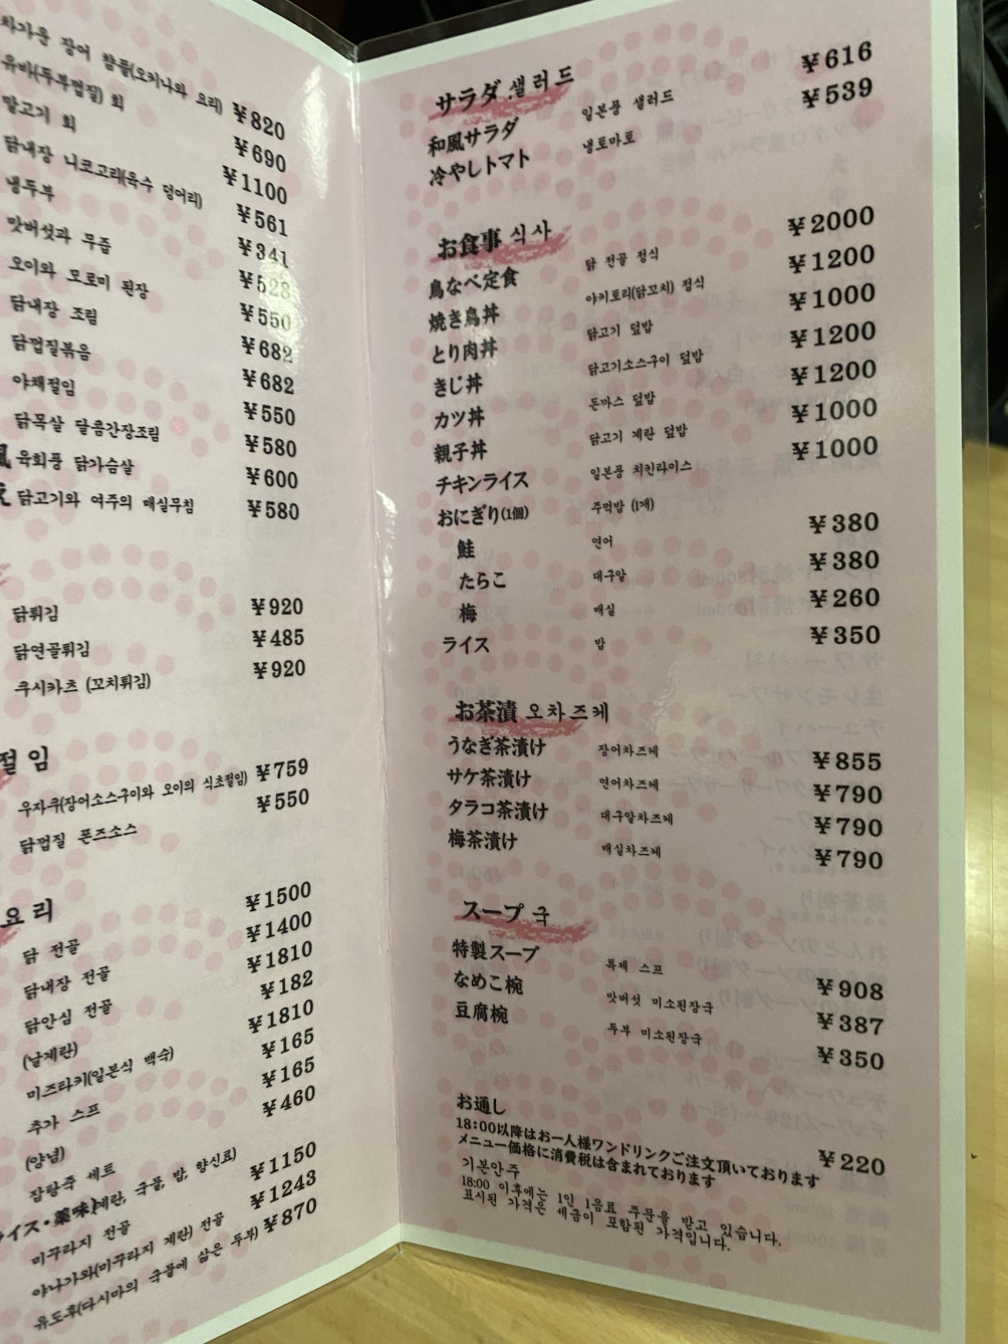 차가운 장어 참플(오키나와 요리) ¥820
유바(두부껍질) 회 ¥690
말고기 회 ¥1100
닭내장 니코고리(육수 덩어리) ¥561
냉두부 ¥341
맛버섯과 무즙 ¥528
오이와 모로미 된장 ¥550
닭내장 조림 ¥682
닭껍질볶음 ¥682
야채절임 ¥550
닭목살 달음간장조림 ¥580
風 육회풍 닭가슴살 ¥600
닭고기와 여주의 매실무침 ¥580
닭튀김 ¥920
닭연골튀김 ¥485
쿠시카츠 (꼬치튀김) ¥920
절임
우자쿠(장어소스구이와 오이의 식초절임) ¥759
닭껍질 폰즈소스 ¥550
요리
닭 전골 ¥1500
닭내장 전골 ¥1400
닭안심 전골 ¥1810
(날계란) ¥182
미즈타키(일본식 백숙) ¥1810
추가 스프 ¥165
(양념) ¥165
잡탕죽 세트 ¥460
イス・薬味)계란, 국물, 밥, 향신료)
미꾸라지 전골 ¥1150
야나가와(미꾸라지 계란) 전골 ¥1243
유도후(다시마의 국물에 삶은 두부) ¥870
サラダ 샐러드
和風サラダ 일본풍 샐러드 ¥616
冷やしトマト 냉토마토 ¥539
お食事 식사
鳥なべ定食 닭 전골 정식 ¥2000
焼き鳥丼 야키토리(닭꼬치) 정식 ¥1200
とり肉丼 닭고기 덮밥 ¥1000
きじ丼 닭고기소스구이 덮밥 ¥1200
カツ丼 돈까스 덮밥 ¥1200
親子丼 닭고기 계란 덮밥 ¥1000
チキンライス 일본풍 치킨라이스 ¥1000
おにぎり(1個) 주먹밥 (1개)
鮭 연어 ¥380
たらこ 대구알 ¥380
梅 매실 ¥260
ライス 밥 ¥350
お茶漬 오차즈케
うなぎ茶漬け 장어차즈케 ¥855
サケ茶漬け 연어차즈케 ¥790
タラコ茶漬け 대구알차즈케 ¥790
梅茶漬け 매실차즈케 ¥790
スープ 국
特製スープ 특제 스프 ¥908
なめこ椀 맛버섯 미소된장국 ¥387
豆腐椀 두부 미소된장국 ¥350
お通し ¥220
18:00以降はお一人様ワンドリンクご注文頂いております
メニュー価格に消費税は含まれております
기본안주
18:00 이후에는 1인 1음료 주문을 받고 있습니다.
표시된 가격은 세금이 포함된 가격입니다.